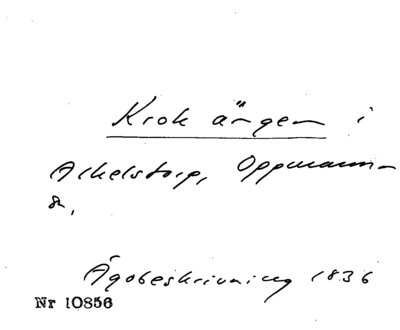 Krok ängen i
Arkelstorp, Oppmanna-
sn.
Ägobeskrivning 1836
Nr 10856